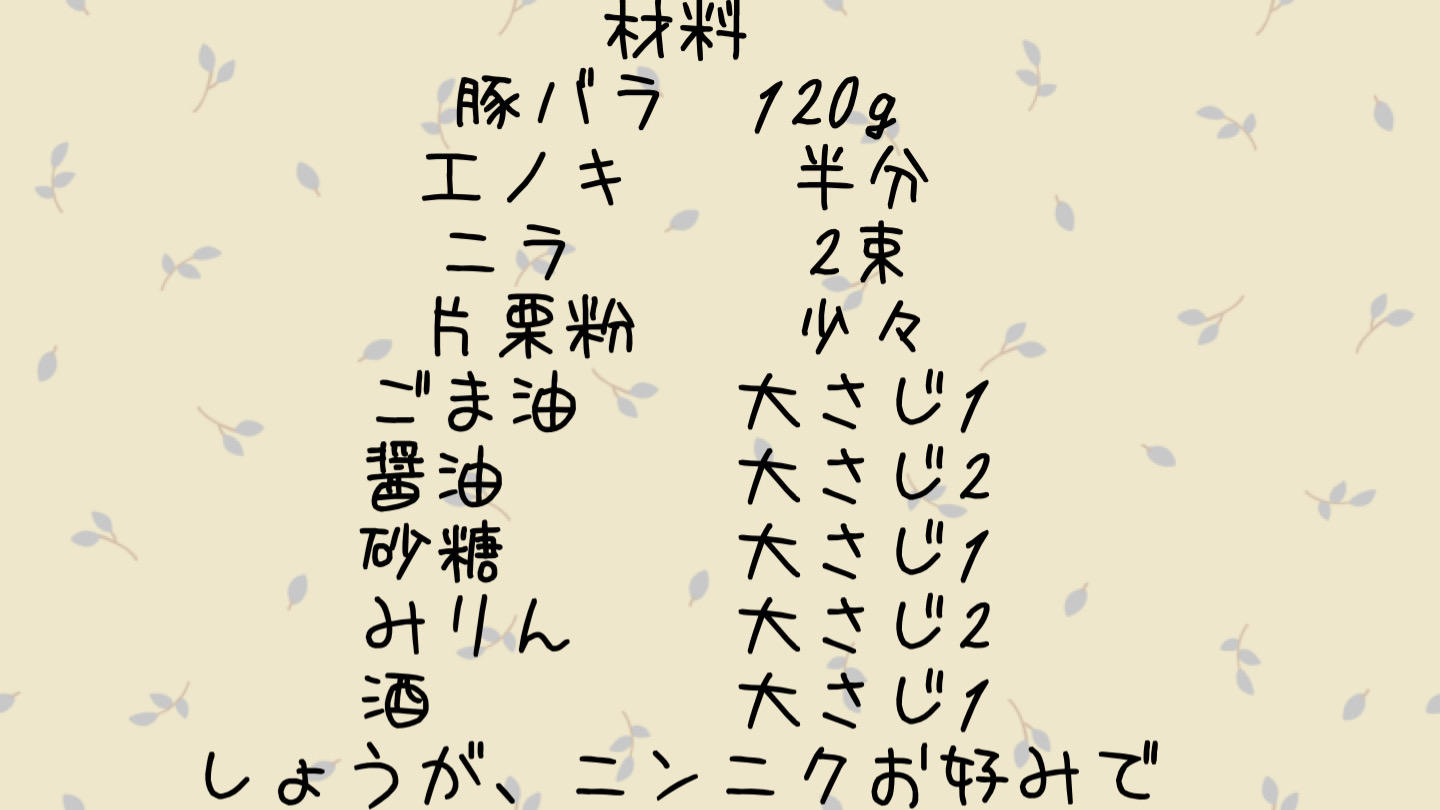 材料
豚バラ 120g
エノキ 半分
ニラ 2束
片栗粉 少々
ごま油 大さじ1
醤油 大さじ2
砂糖 大さじ1
みりん 大さじ2
酒 大さじ1
しょうが、ニンニクお好みで